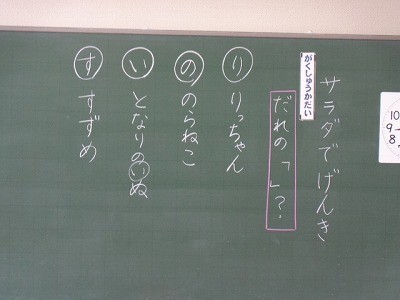 サラダでげんき
がくしゅうかだい
だれの「 」?
り りっちゃん
の のらねこ
い となりのいぬ
す すずめ
10
9
8